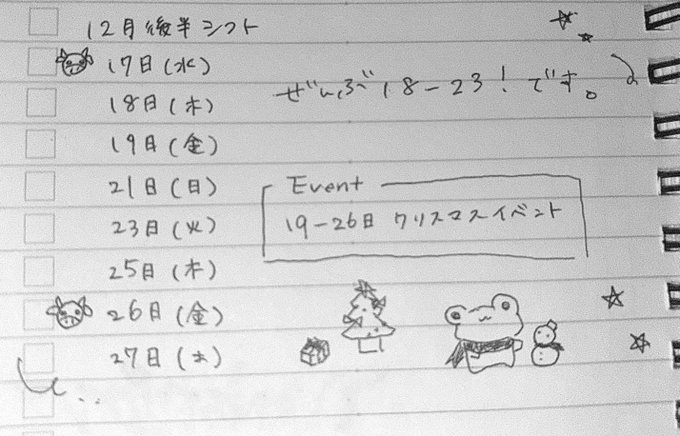 12月後半シフト
17日(水)
ぜんぶ18-23!です。
18日(木)
19日(金)
21日(日)
23日(火)
25日(木)
26日(金)
27日(土)
Event
19-26日 クリスマスイベント